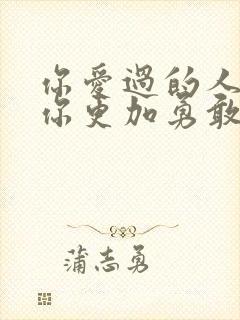 你愛過的人
你更加勇敢
蒲志勇